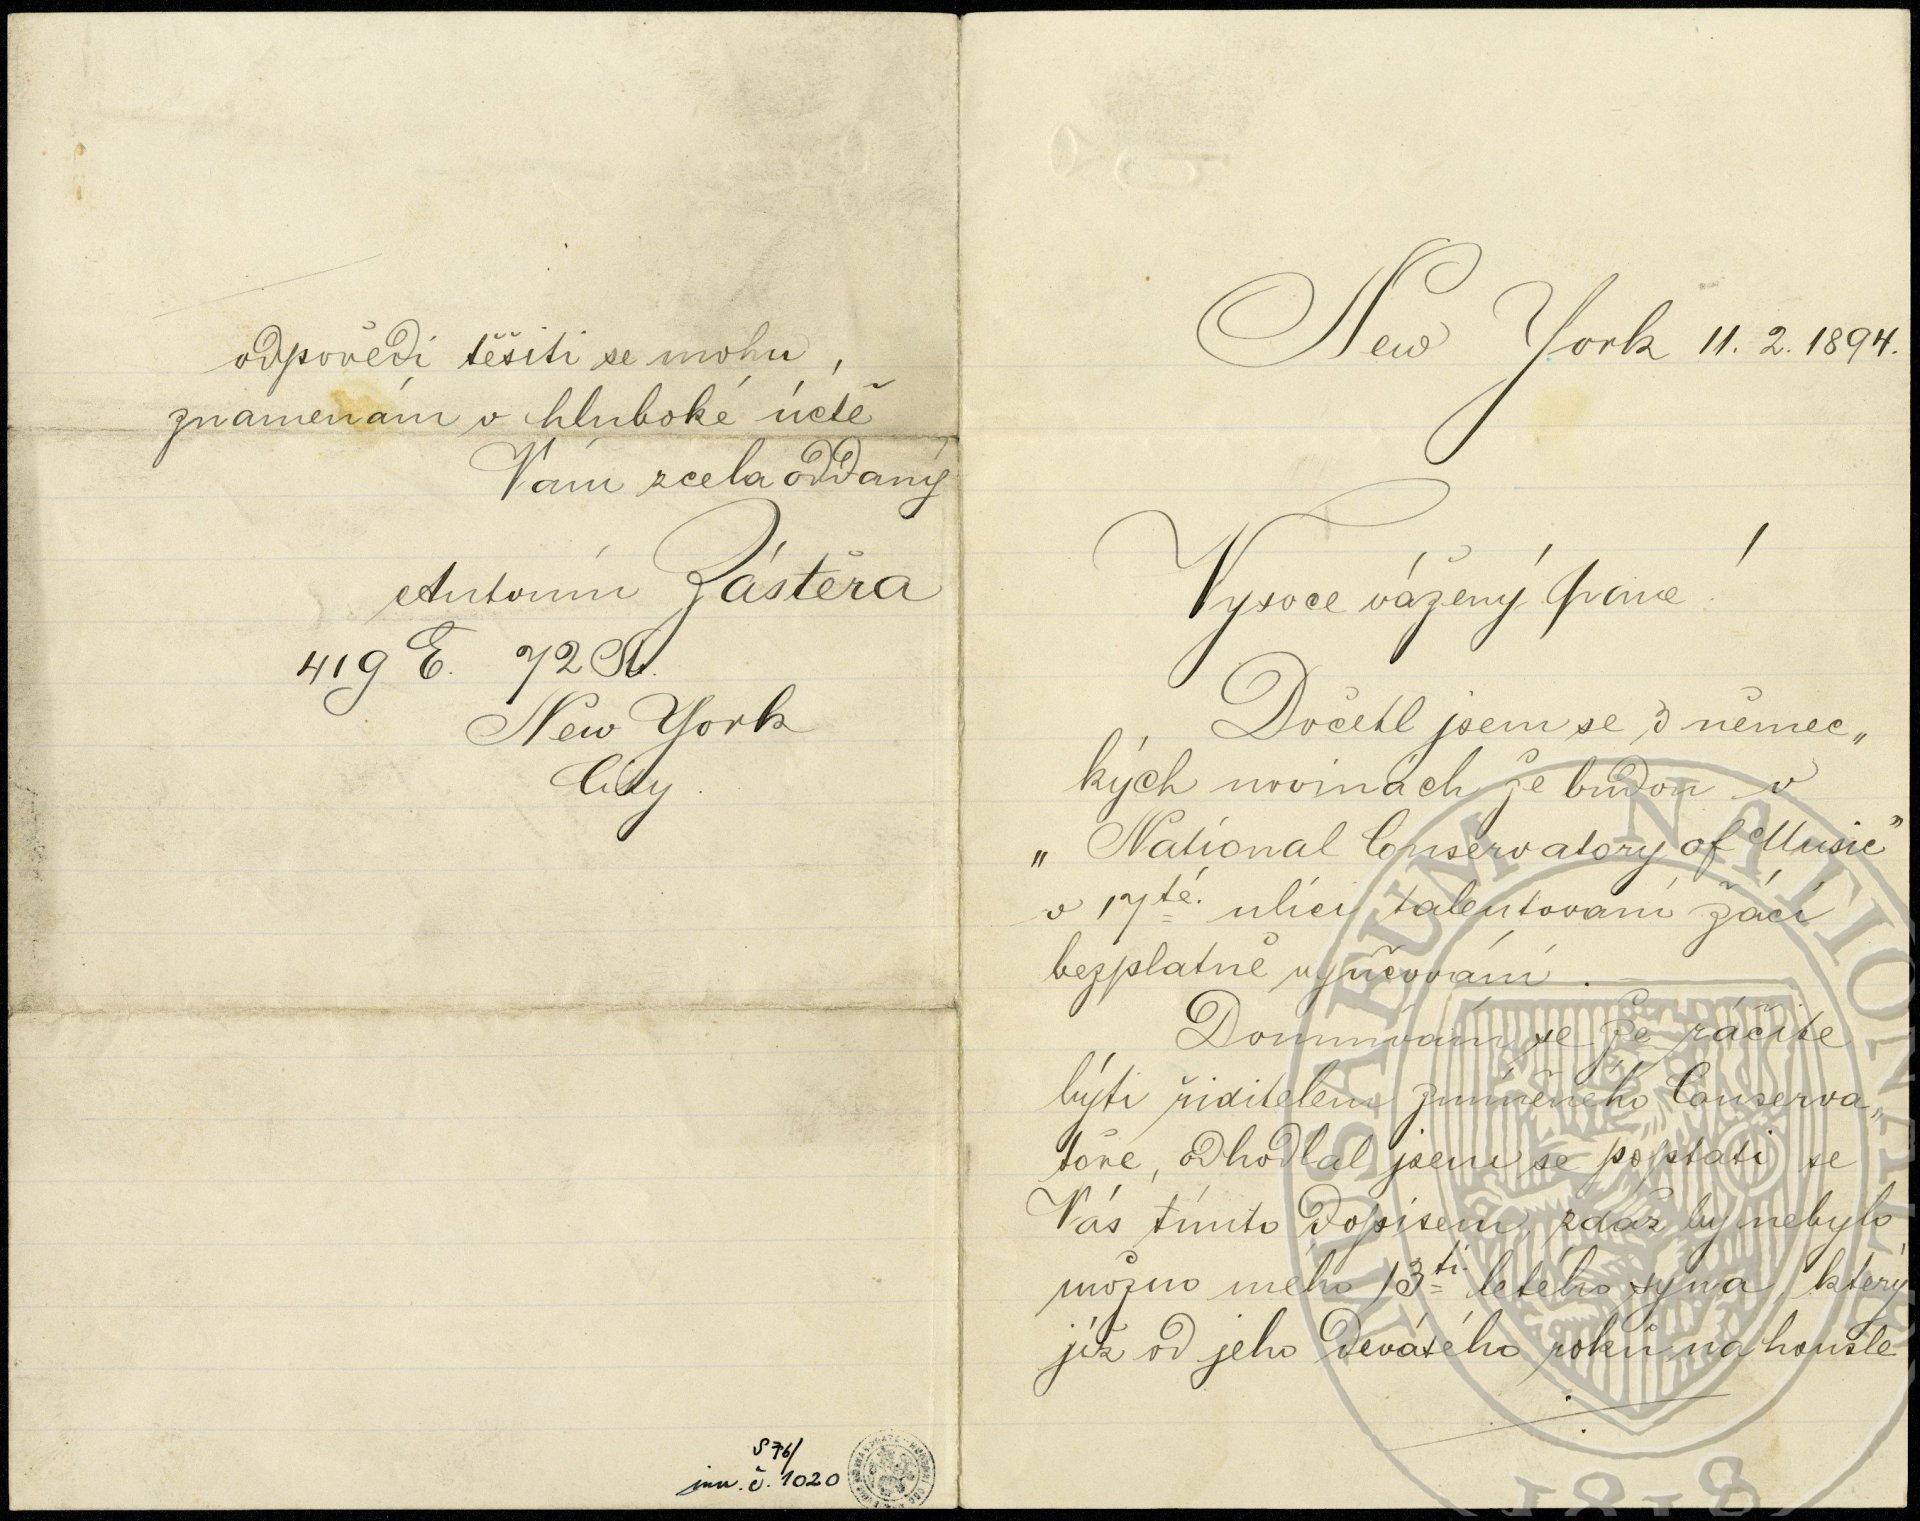 New York 11. 2. 1894.
Vysoce vážený pane!
Dočetl jsem se z němec„
kých novinách že budou v
„National Conservatory of Music"
v 17té. ulici talentovaní žáci
bezplatně vyučováni.
Domnívám se že ráčíte
býti řiditelem zmíněného Conserva„
toře, odhodlal jsem se poptati se
Vás tímto dopisem, zdaž by nebylo
možno mého 13ti letého syna, který
již od jeho devátého roku na housle
odpovědi těšiti se mohu,
znamenám v hluboké úctě
Vám zcela oddaný
Antonín Zástěra
419 E. 72 St.
New York
City.
S 76/
inv. č. 1020
MUSAEUM NATIONALE
1818